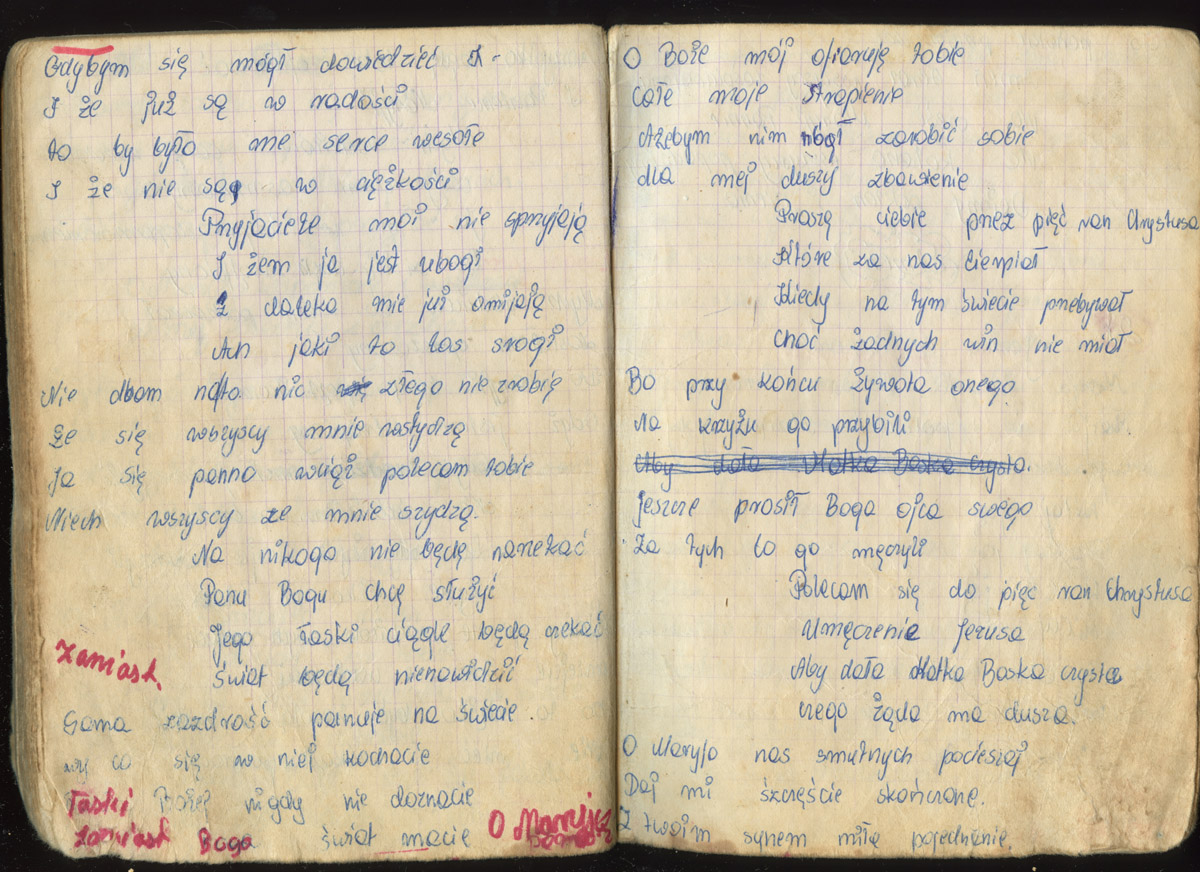 Gdybym się mógł dowiedzieć I -
I że już są w radości
to by było me serce wesołe
I że nie są w ciężkości
Przyjaciele moi nie sprzyjają
I żem ja jest ubogi
Z daleka mie już omijają
Ach jaki to los srogi
Nie dbam na to nic złego nie zrobię
że się wszyscy mnie wstydzą
Ja się panno wciąż polecam tobie
Niech wszyscy ze mnie szydzą.
Na nikogo nie będę narzekać
Panu Bogu chcę służyć
Jego łaski ciągle będą czekać
świat będą nienawidzić
Zamiast.
Sama zazdrość panuje na świecie.
wy co się w niej kochacie
łaski Bożej nigdy nie doznacie
zamiast Boga świat macie
O Maryjo
O Boże mój ofiaruję tobie
całe moje strapienie
Ażebym nim mógł zarobić sobie
dla mej duszy zbawienie
Proszę ciebie przez pięć ran Chrystusa
Które za nas cierpiał
Kiedy na tym świecie przebywał
choć żadnych win nie miał
Bo przy końcu żywota onego
Na krzyżu go przybili
Aby dała Matka Boska czysta.
Jeszcze prosił Boga ojca swego
Za tych co go męczyli
Polecam się do pięć ran Chrystusa
Umęczenia Jezusa
Aby dała Matka Boska czysta
czego żąda ma dusza.
O Maryjo nas smutnych pocieszaj
Daj mi szczęście skończone.
Z twoim synem miłe pojednanie.